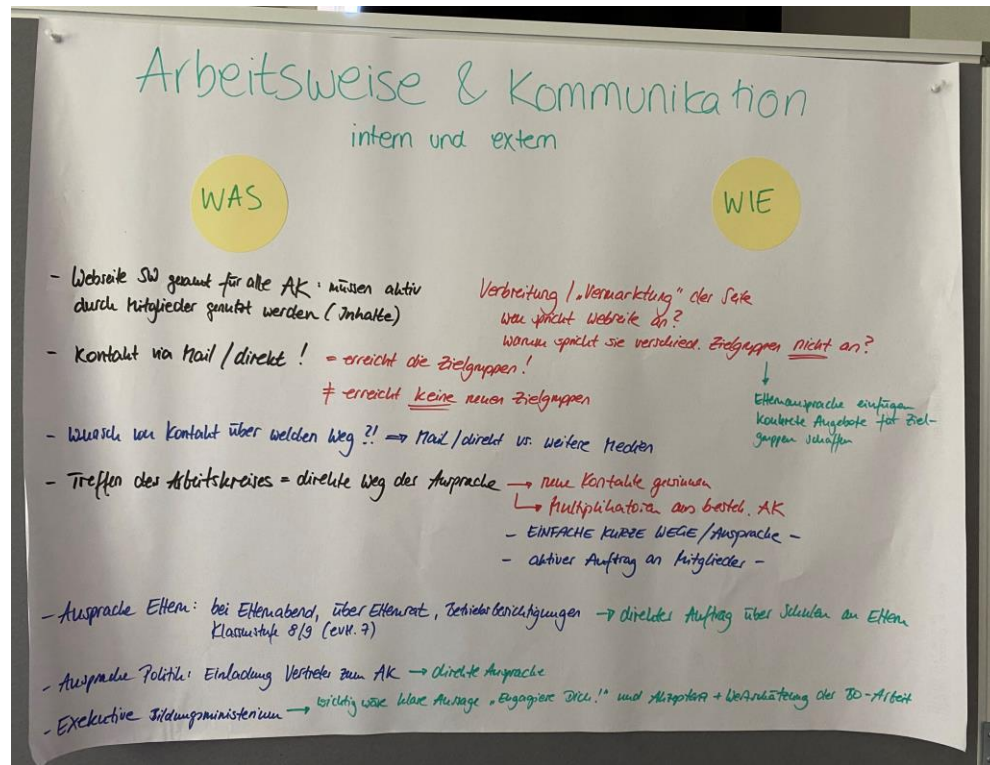 Arbeitsweise & Kommunikation
intern und extern
WAS
WIE
- Webseite SW gesamt für alle AK: müssen aktiv
durch Mitglieder genutzt werden (Inhalte)
Verbreitung / „Vermarktung" der Seite
wen spricht Webseite an?
Warum spricht sie verschied. Zielgruppen nicht an?
↓
Elternansprache einfügen
Konkrete Angebote für Ziel-
gruppen schaffen
- Kontakt via Mail / direkt ! = erreicht die Zielgruppen!
≠ erreicht keine neuen Zielgruppen
- Wunsch von Kontakt über welchen Weg ?! => Mail / direkt vs. weitere Medien
- Treffen des Arbeitskreises = direkte Weg der Ansprache → neue Kontakte gewinnen
↳ Multiplikatoren aus besteh. AK
- EINFACHE KURZE WEGE / Ansprache -
- aktiver Auftrag an Mitglieder -
- Ansprache Eltern: bei Elternabend, über Elternrat, Betriebsbesichtigungen → direkter Auftrag über Schulen an Eltern
Klassenstufe 8/9 (evtl. 7)
- Ansprache Politik: Einladung Vertreter zum AK → direkte Ansprache
- Exekutive Bildungsministerium → wichtig wäre klare Aussage „Engagiere Dich!" und Akzeptanz + Wertschätzung der BO-Arbeit